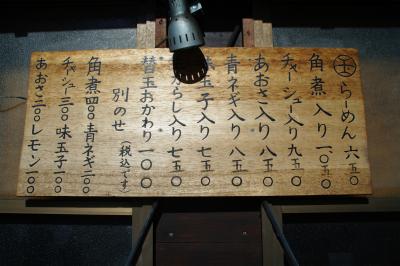 玉 らーめん 六五〇
角煮入り 一〇五〇
チャーシュー入り 九五〇
あおさ入り 八五〇
青ネギ入り 八五〇
味玉子入り 七五〇
らし入り 七五〇
替玉おかわり 一〇〇
別のせ (税込です)
角煮四〇〇 青ネギ二〇〇
チャーシュー三〇〇 味玉子一〇〇
あおさ二〇〇 レモン一〇〇